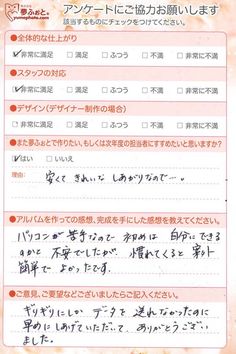 夢ふぉと。
yumephoto.com
アンケートにご協力お願いします
該当するものにチェックをつけてください。
●全体的な仕上がり
☑非常に満足 □満足 □ふつう □不満 □非常に不満
●スタッフの対応
☑非常に満足 □満足 □ふつう □不満 □非常に不満
●デザイン(デザイナー制作の場合)
□非常に満足 □満足 □ふつう □不満 □非常に不満
●また夢ふぉとで作りたい、もしくは次年度の担当者にすすめたいと思いますか?
☑はい □いいえ
理由:
安くて きれいな しあがりなので…。
●アルバムを作っての感想、完成を手にした感想を教えてください。
パソコンが苦手なので 初めは 自分にできる
のかと 不安でしたが、慣れてくると 案外
簡単で よかったです。
●ご意見、ご要望などございましたらご記入ください。
ギリギリにしか データを 送れなかったのに
早めに しあげていただいて、ありがとうござい
ました。